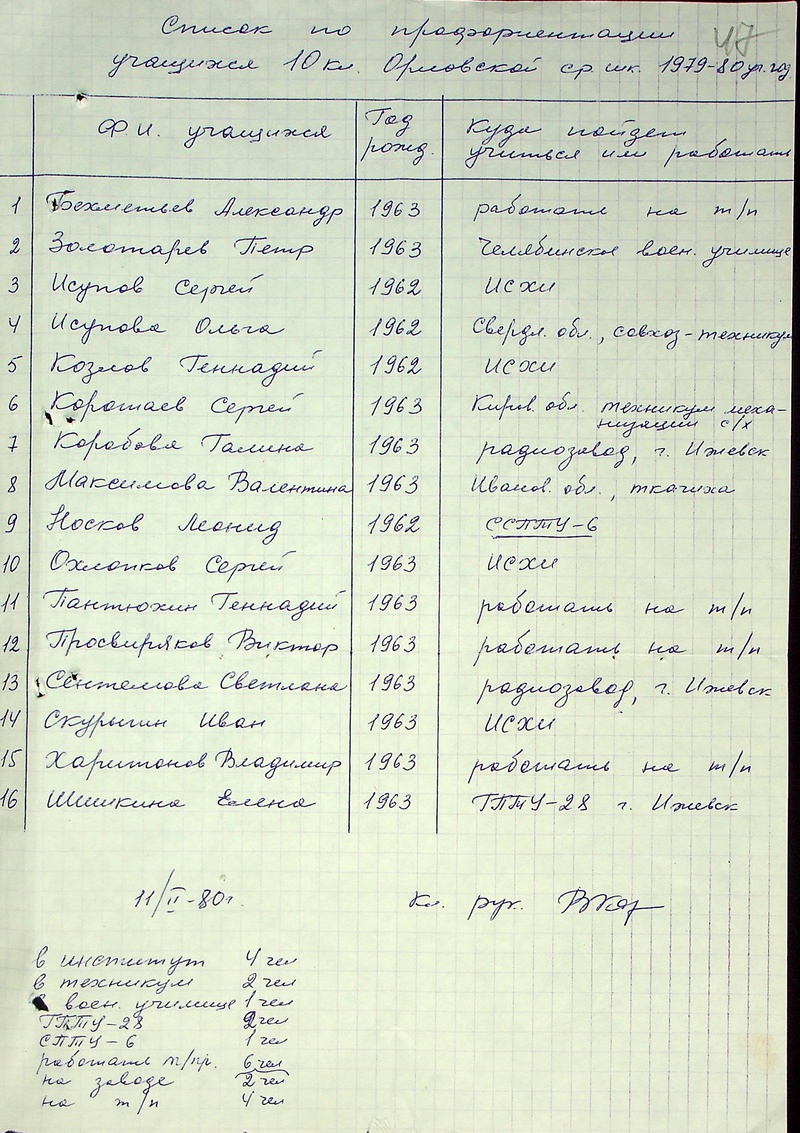 47
Список по профориентации
учащихся 10 кл. Орловской ср. шк. 1979-80 уч. год.
Ф.И. учащихся Год рожд. Куда пойдет учиться или работать
1 Бехметьев Александр 1963 работать на т/п
2 Золотарев Петр 1963 Челябинское воен. училище
3 Исупов Сергей 1962 ИСХИ
4 Исупова Ольга 1962 Свердл. обл., совхоз-техникум
5 Козлов Геннадий 1962 ИСХИ
6 Коротаев Сергей 1963 Киров. обл. техникум меха-
низации с/х
7 Коробова Галина 1963 радиозавод, г. Ижевск
8 Максимова Валентина 1963 Иванов. обл., ткачиха
9 Носков Леонид 1962 ССПТУ-6
10 Охлопков Сергей 1963 ИСХИ
11 Пантюхин Геннадий 1963 работать на т/п
12 Просвиряков Виктор 1963 работать на т/п
13 Сентемова Светлана 1963 радиозавод, г. Ижевск
14 Скурыгин Иван 1963 ИСХИ
15 Харитонов Владимир 1963 работать на т/п
16 Шишкина Елена 1963 ТПТУ-28 г. Ижевск
11/II-80г. Кл. рук.
в институт 4 чел
в техникум 2 чел
в воен. училище 1 чел
ТПТУ-28 2 чел
СПТУ-6 1 чел
работать т/пр. 6 чел
на заводе 2 чел
на т/п 4 чел